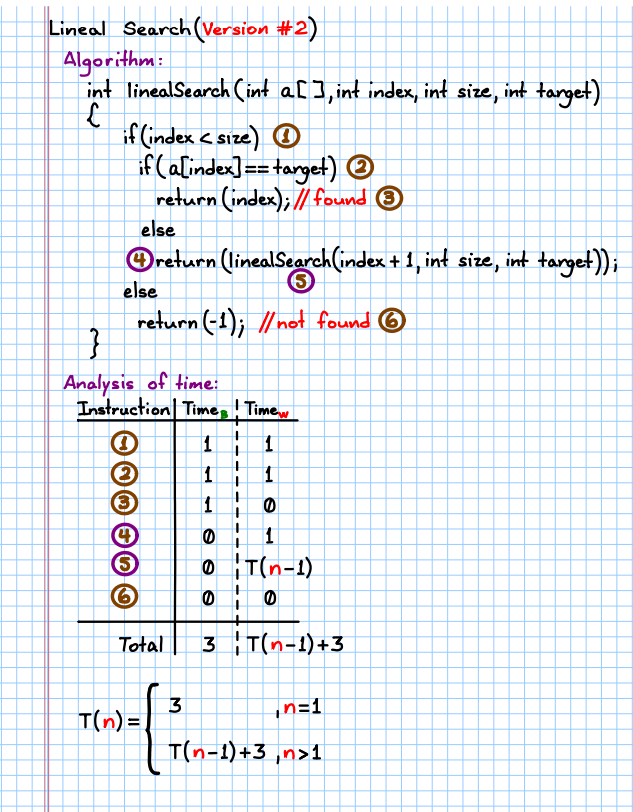 Lineal Search (Version #2)
Algorithm:
int linealSearch (int a[ ], int index, int size, int target)
{
if (index < size) ①
if (a[index] == target) ②
return (index); // found ③
else
④ return (linealSearch(index + 1, int size, int target));
⑤
else
return (-1); // not found ⑥
}
Analysis of time:
Instruction Time_B Time_W
① 1 1
② 1 1
③ 1 0
④ 0 1
⑤ 0 T(n-1)
⑥ 0 0
Total 3 T(n-1)+3
T(n) = {
3 , n=1
T(n-1)+3 , n>1